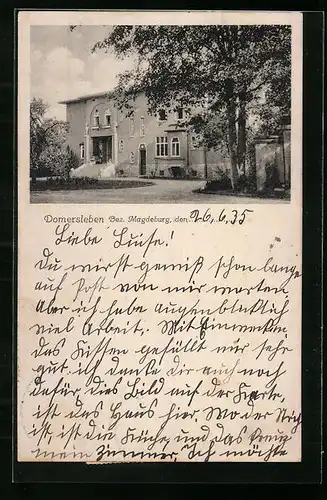 Domersleben Bez. Magdeburg, den 26.6.35
Liebe Luise!
Du wirst gewiß schon lange
auf Post von mir warten
aber ich habe augenblicklich
viel Arbeit. Mit Einwecken
das Kissen gefällt mir sehr
gut. ich danke Dir auch noch
dafür dies Bild auf der Karte,
ist das Haus hier. Wo der Strich
ist, ist die Küche, und das Kreuz
mein Zimmer. Ich möchte